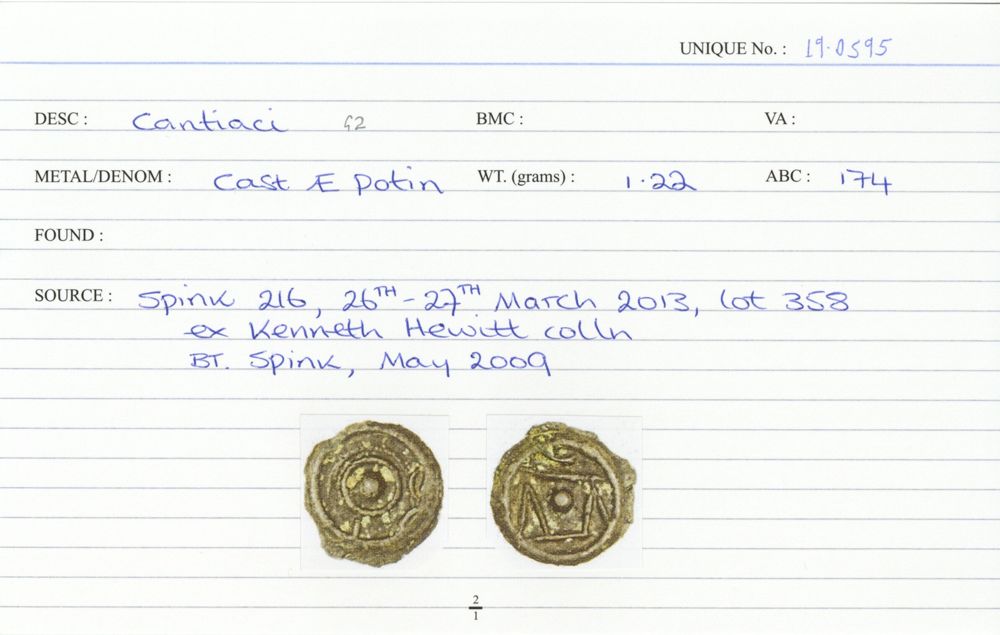 UNIQUE No. : 19.0595
DESC : Cantiaci G2 BMC : VA :
METAL/DENOM : Cast Æ Potin WT. (grams) : 1.22 ABC : 174
FOUND :
SOURCE : Spink 216, 26TH-27TH March 2013, lot 358
ex Kenneth Hewitt colln
BT. Spink, May 2009
2
1